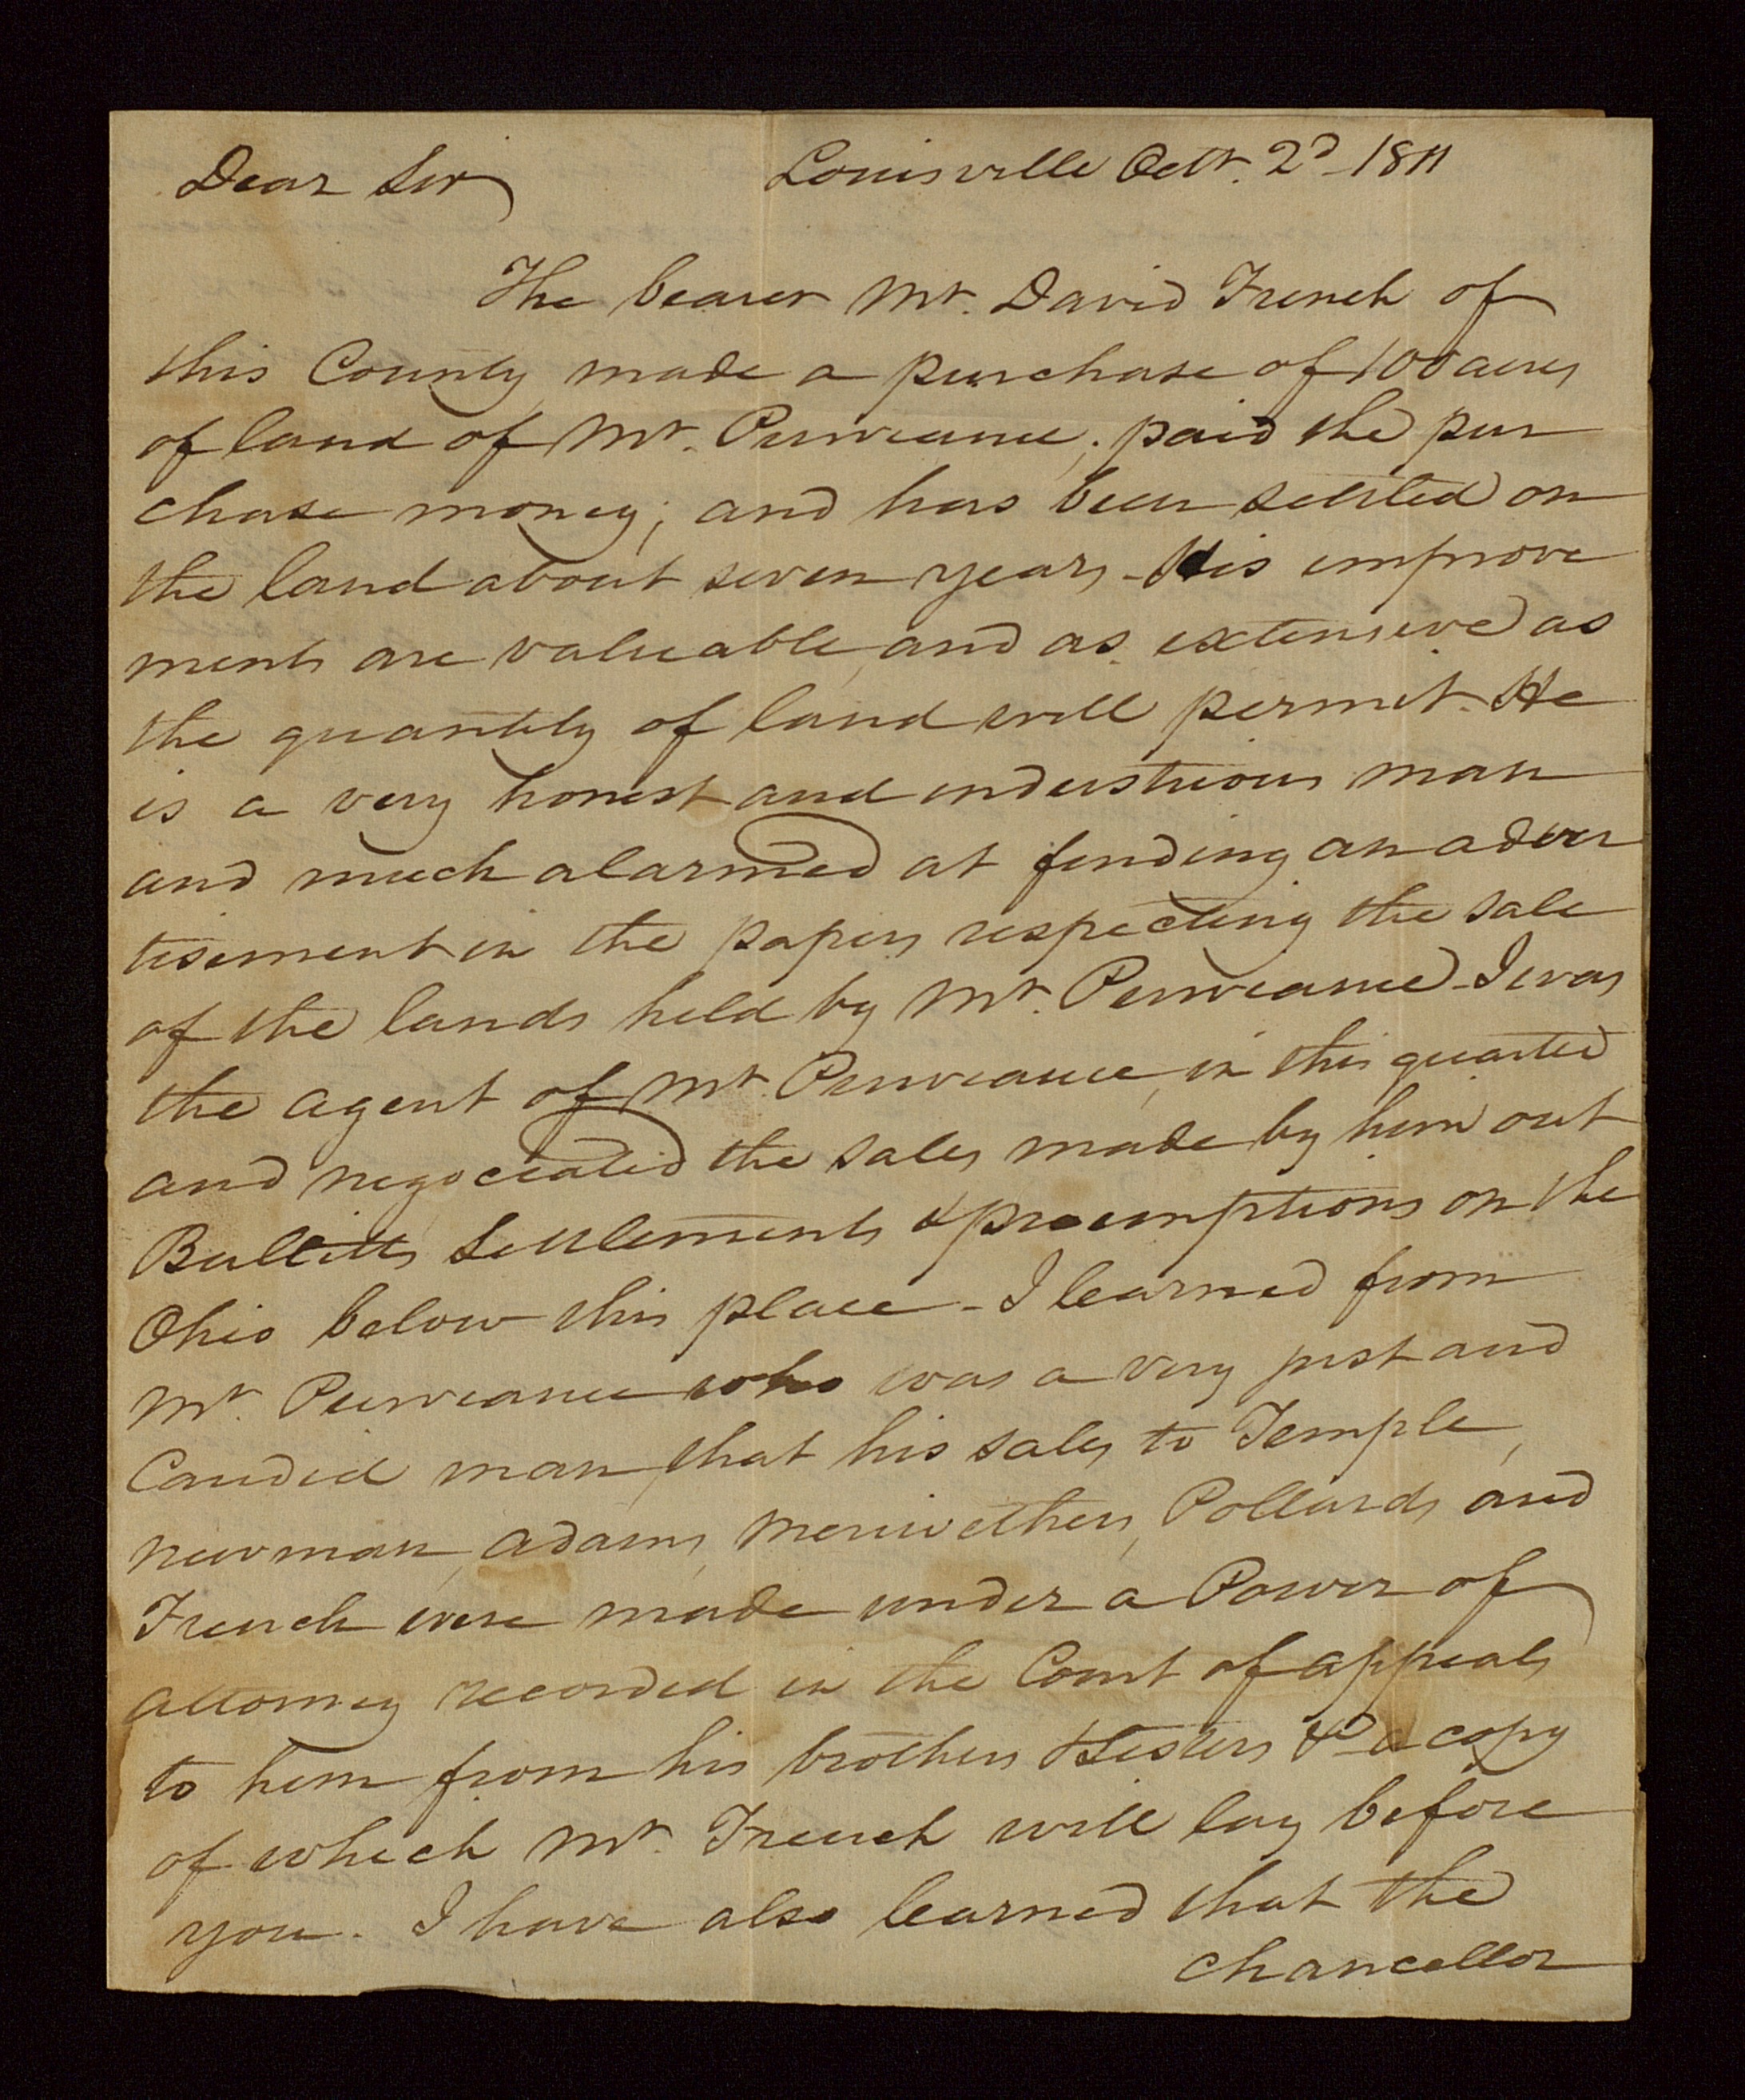 Dear Sir Louisville Octr. 2d 1811
The bearer Mr. David French of
this County made a purchase of 100 acres
of land of Mr. Purviance; paid the pur
chase money; and has been settled on
the land about seven years - His improve
ments are valuable and as extensive as
the quantity of land will permit. He
is a very honest and industrious man
and much alarmed at finding an adver
tisement in the papers respecting the sale
of the lands held by Mr. Purviance - I was
the agent of Mr. Purviance, in this quarter
and negociated the sales made by him out
Bullitts Settlements & preemptions on the
Ohio below this place - I learned from
Mr. Purviance who was a very just and
Candid man, that his sales to Temple,
Newman, Adams, Meriwethers, Pollards, and
French were made under a Power of
attorney recorded in the Court of appeals
to him from his brothers & Sisters &c a copy
of which Mr. French will lay before
you. I have also learned that the
Chancellor